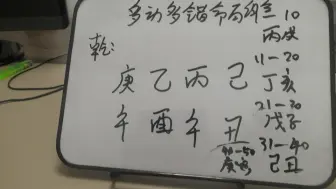 多动多错命局
1-10
丙戌
乾:
11-20
丁亥
庚 乙 丙 己
午 酉 午 丑
21-30
戊子
31-40
己丑
40-50
庚寅